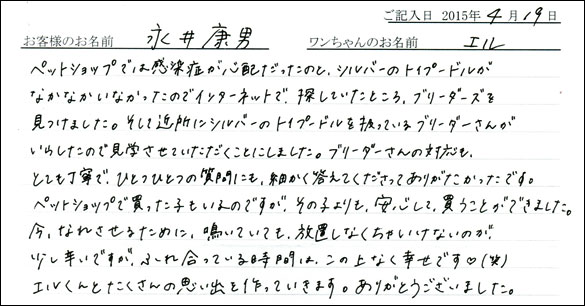 ご記入日 2015年4月19日
お客様のお名前 永井康男 ワンちゃんのお名前 エル
ペットショップでは感染症が心配だったのと、シルバーのトイプードルが
なかなかいなかったのでインターネットで、探していたところ、ブリーダーズを
見つけました。そして近所にシルバーのトイプードルを扱っているブリーダーさんが
いらしたので見学させていただくことにしました。ブリーダーさんの対応も、
とても丁寧で、ひとつひとつの質問にも、細かく答えてくださってありがたかったです。
ペットショップで買った子もいるのですが、その子よりも、安心して、買うことができました。
今、なれさせるために、鳴いていても、放置しなくちゃいけないのが、
少し辛いですが、ふれ合っている時間は、この上なく幸せです♡(笑)
エルくんとたくさんの思い出を作っていきます。ありがとうございました。